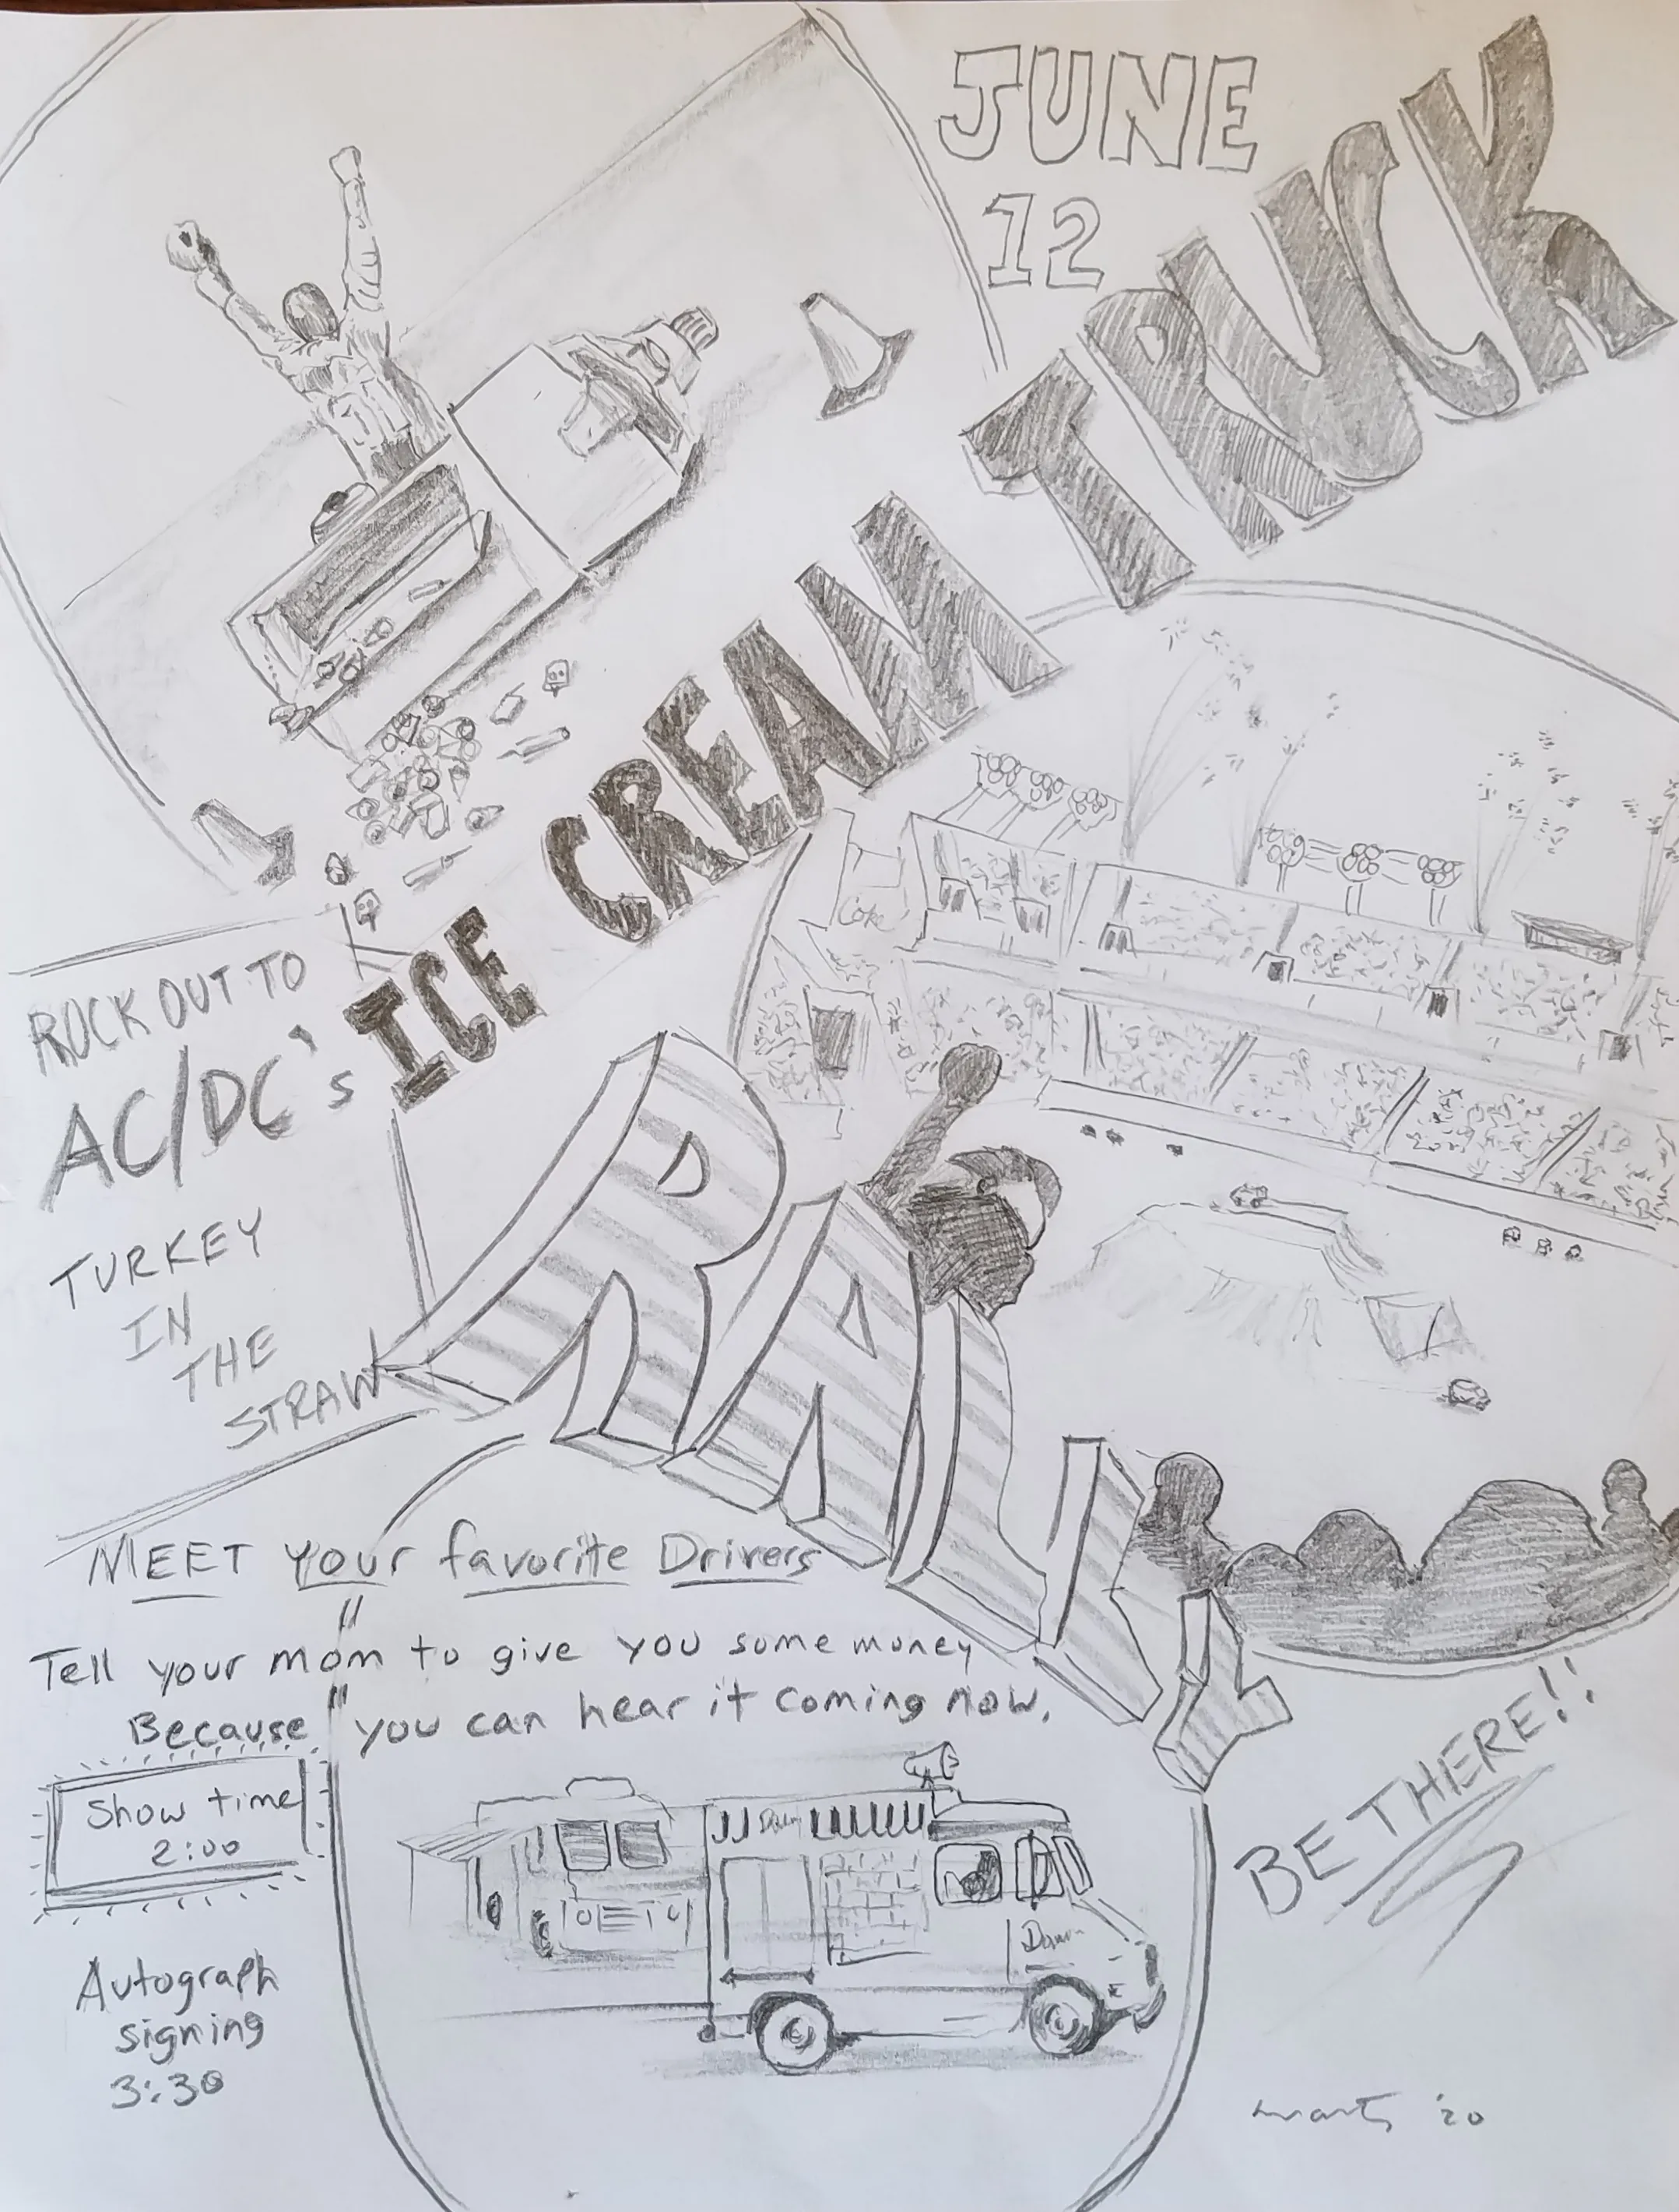 JUNE
12
ICE CREAM TRUCK
Coke
ROCK OUT TO
AC/DC's
TURKEY
IN
THE
STRAW
RALLY
MEET your favorite Drivers
Tell your mom to give you some money
Because "you can hear it coming now.
Show time
2:00
Autograph
signing
3:30
BE THERE!!
'20